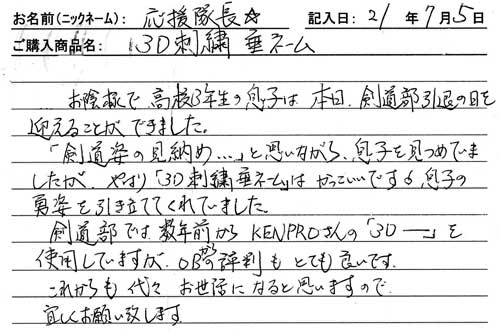 お名前(ニックネーム): 応援隊長☆ 記入日: 21 年 7月 5日
ご購入商品名: 3D刺繍 垂ネーム
お陰様で 高校3年生の息子は 本日、剣道部引退の日を
迎えることができました。
「剣道姿の見納め…」と思いながら、息子を見つめていま
したが、やはり「3D刺繍垂ネーム」は かっこいいです♂ 息子の
勇姿を引き立ててくれていました。
剣道部では 数年前から KENPROさんの「3D ー」を
使用していますが、OBからの評判も とても良いです。
これからも 代々 お世話になると思いますので
宜しくお願い致します。